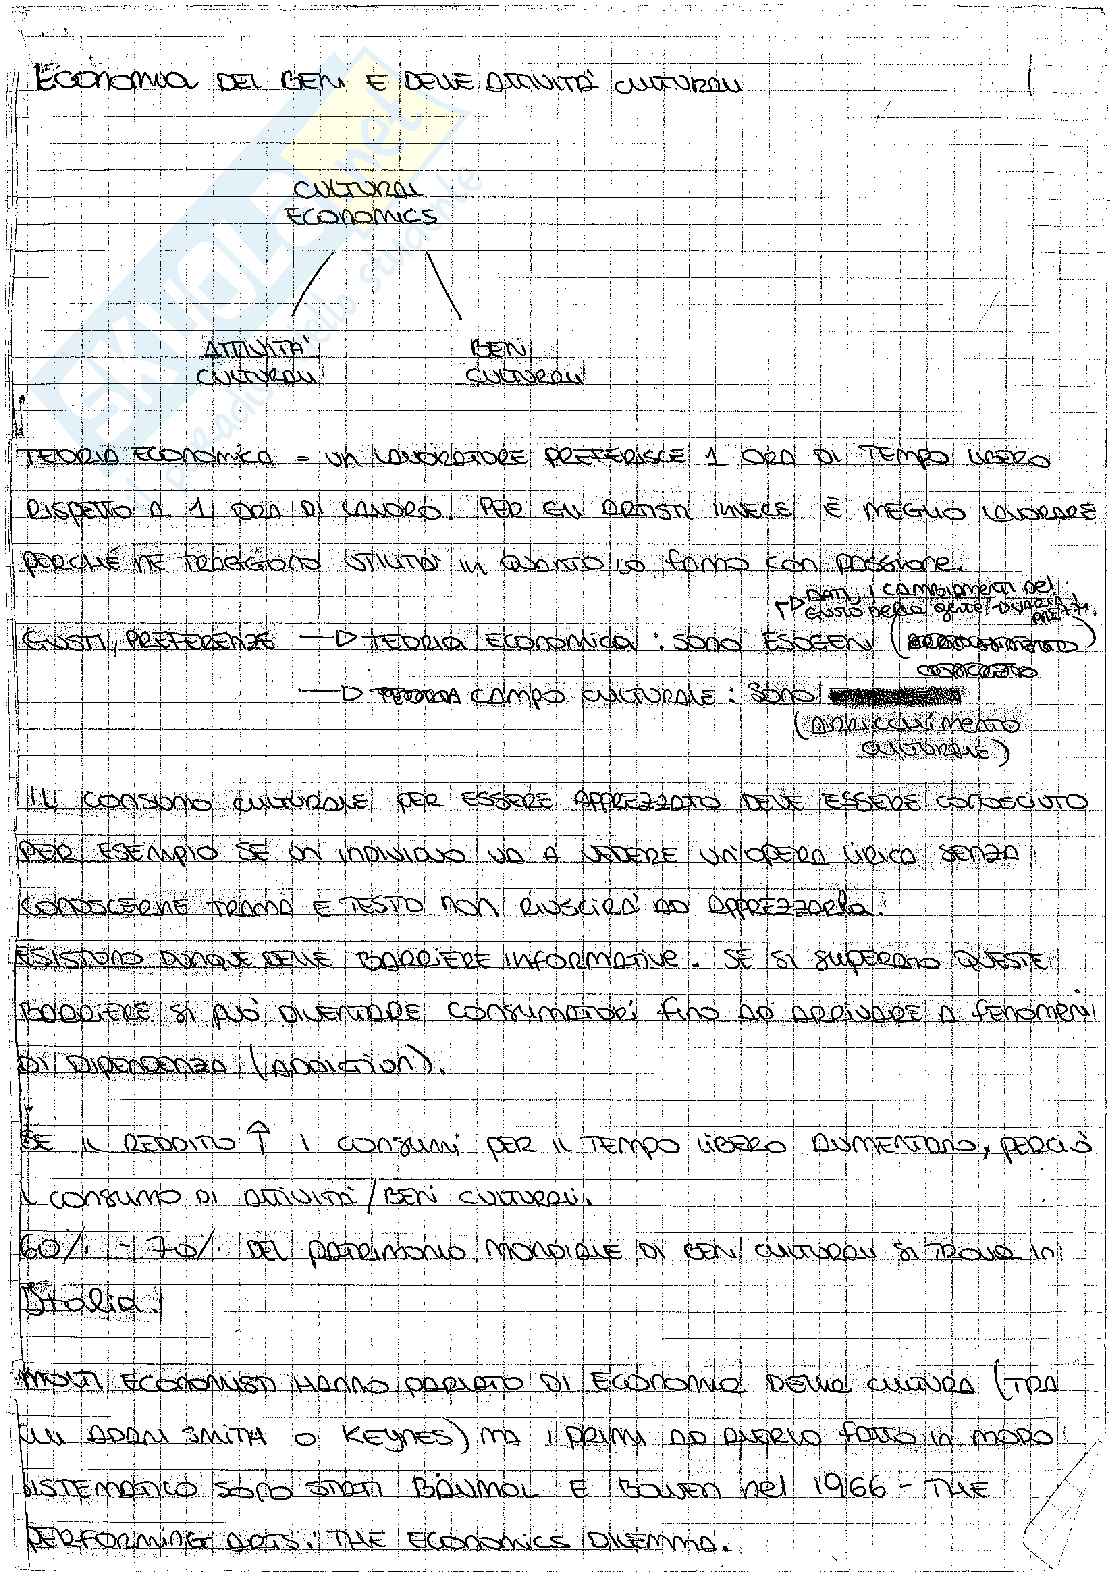 ECONOMIA DEI BENI E DELLE ATTIVITÀ CULTURALI
1
CULTURAL
ECONOMICS
ATTIVITÀ
CULTURALI
BENI
CULTURALI
TEORIA ECONOMICA = UN LAVORATORE PREFERISCE 1 ORA DI TEMPO LIBERO
RISPETTO A 1 ORA DI LAVORO. PER GLI ARTISTI INVECE È MEGLIO LAVORARE
PERCHÉ NE TRAGGONO UTILITÀ IN QUANTO LO FANNO CON PASSIONE.
DATI, I CAMBIAMENTI DEL
GUSTO DELLA GENTE
GUSTI, PREFERENZE → TEORIA ECONOMICA: SONO ESOGENI (
→ CAMPO CULTURALE: SONO
(ARRICCHIMENTO
CULTURALE)
IL CONSUMO CULTURALE PER ESSERE APPREZZATO DEVE ESSERE CONOSCIUTO
PER ESEMPIO SE UN INDIVIDUO VA A VEDERE UN'OPERA LIRICA SENZA
CONOSCERNE TRAMA E TESTO NON RIUSCIRÀ AD APPREZZARLA.
ESISTONO DUNQUE DELLE BARRIERE INFORMATIVE. SE SI SUPERANO QUESTE
BARRIERE SI PUÒ DIVENTARE CONSUMATORI FINO AD ARRIVARE A FENOMENI
DI DIPENDENZA (ADDICTION).
SE IL REDDITO ↑ I CONSUMI PER IL TEMPO LIBERO AUMENTANO, PERCIÒ
IL CONSUMO DI ATTIVITÀ/BENI CULTURALI.
60% - 70% DEL PATRIMONIO MONDIALE DI BENI CULTURALI SI TROVA IN
ITALIA.
MOLTI ECONOMISTI HANNO PARLATO DI ECONOMIA DELLA CULTURA (TRA
CUI ADAM SMITH O KEYNES) MA I PRIMI AD AVERLO FATTO IN MODO
SISTEMATICO SONO STATI BAUMOL E BOWEN NEL 1966 - THE
PERFORMING ARTS: THE ECONOMICS DILEMMA.